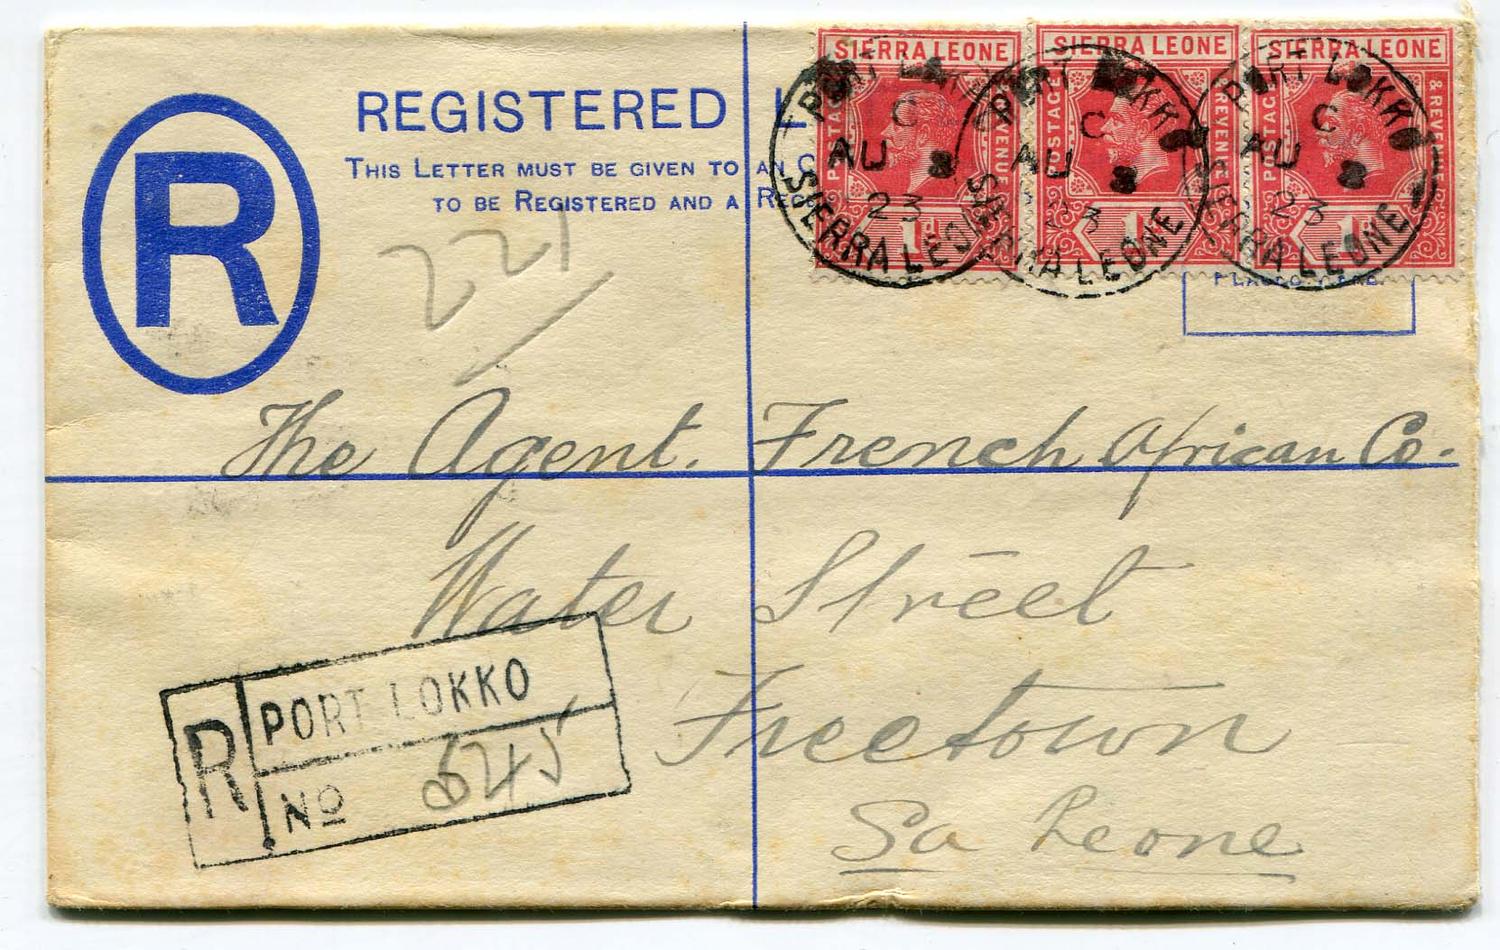 REGISTERED L
THIS LETTER MUST BE GIVEN TO AN
TO BE REGISTERED AND A
R
SIERRA LEONE SIERRA LEONE SIERRA LEONE
POSTAGE & REVENUE POSTAGE & REVENUE POSTAGE & REVENUE
1d 1 1
PORT LOKKO C AU 8 23 SIERRA LEONE
PORT LOKKO C AU 8 23 SIERRA LEONE
PORT LOKKO C AU 8 23 SIERRA LEONE
221
The Agent. French African Co.
Water Street
Freetown
Sa Leone
R PORT LOKKO
No 545